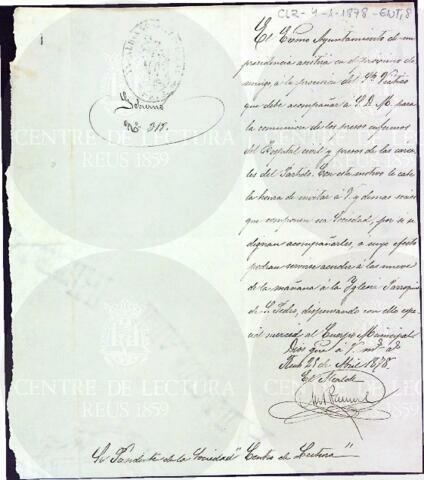 CL2-4-1-1878-ENT,8
1
Gobierno
Nº 318.
El Excmo Ayuntamiento de mi
presidencia asistirá en el próximo do
mingo, á la procesion del Sto Viático
que debe acompañar á S.D.M. para
la comunion de los presos enfermos
del Hospital civil y presos de las cárce
les del Partido. Con este motivo le cabe
la honra de invitar á V. y demas socios
que componen esa Sociedad, por si se
dignan acompañarles, á cuyo efecto
podran servirse acudir á las nueve
de la mañana á la Yglesia Parroquial
de S. Pedro, dispensando con ello espe
cial merced al Cuerpo Municipal
Dios gue á V. ms. as.
Reus 25 de Abril 1878.
El Alcalde
Sr Presidente de la Sociedad "Centro de Lectura"
CENTRE DE LECTURA
REUS 1859
CENTRE DE LECTURA
REUS 1859